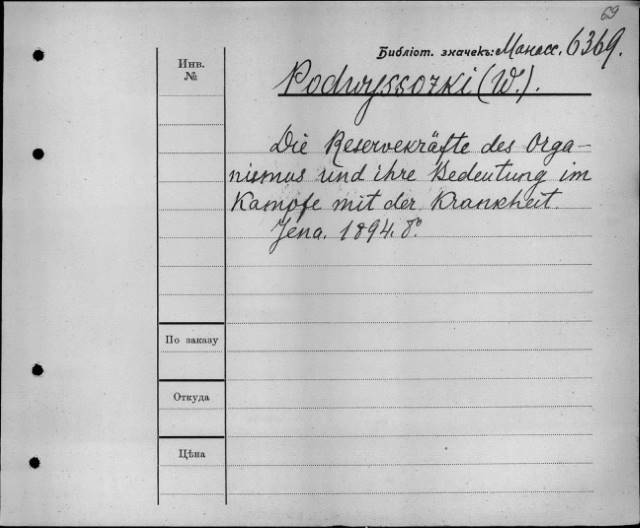 69
Библіот. значекъ: Манасс. 6369.
Инв.
№
Podwyssozki (W.).
Die Reservekräfte des Orga-
nismus und ihre Bedeutung im
Kampfe mit der Krankheit.
Jena. 1894. 8°.
По заказу
Откуда
Цѣна